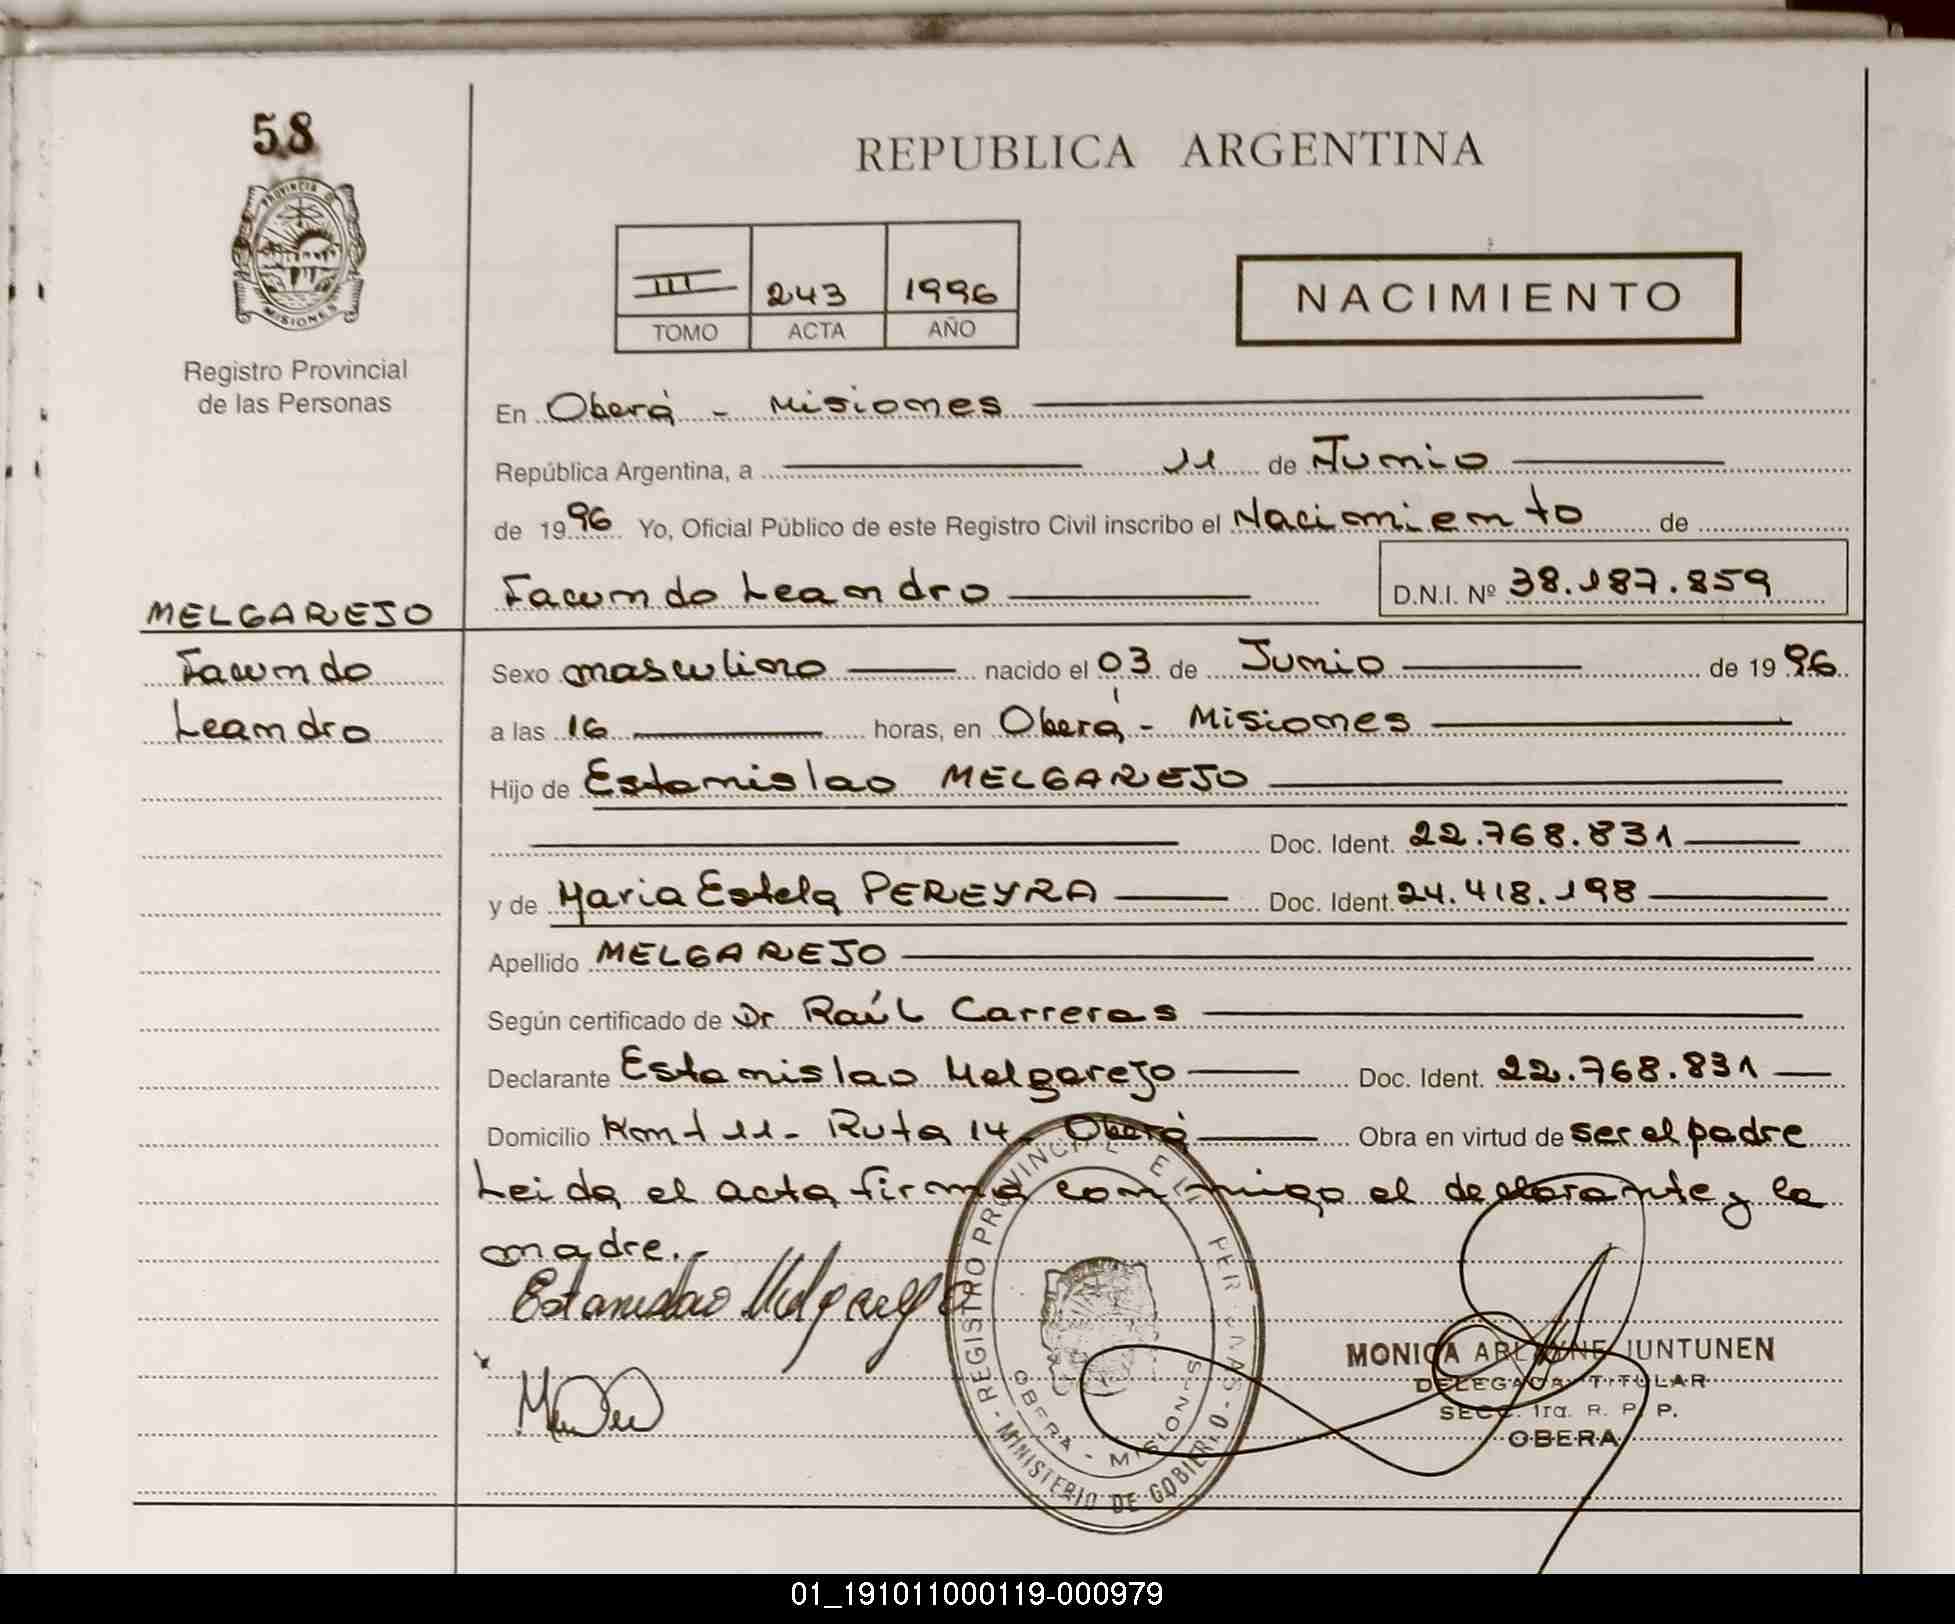 58
PROVINCIA DE
MISIONES
Registro Provincial
de las Personas
REPUBLICA ARGENTINA
III 243 1996
TOMO ACTA AÑO
NACIMIENTO
En Oberá - Misiones
República Argentina, a 11 de Junio
de 1996 Yo, Oficial Público de este Registro Civil inscribo el Nacimiento de
MELGAREJO Facundo Leandro D.N.I. Nº 38.187.859
Facundo Sexo masculino nacido el 03 de Junio de 1996
Leandro a las 16 horas, en Oberá - Misiones
Hijo de Estanislao MELGAREJO
Doc. Ident. 22.768.831
y de Maria Estela PEREYRA Doc. Ident. 24.418.198
Apellido MELGAREJO
Según certificado de Dr Raúl Carreras
Declarante Estanislao Melgarejo Doc. Ident. 22.768.831
Domicilio Km 11 - Ruta 14 - Oberá Obra en virtud de ser el padre
Leida el acta firma conmigo el declarante y la
madre.-
Estanislao Melgarejo
REGISTRO PROVINCIAL
- MINISTERIO DE GOBIERNO -
OBERA - MISIONES
MONICA JUNTUNEN
DELEGADA TITULAR
SECC. 1ra. R. P. P.
OBERA
01_191011000119-000979